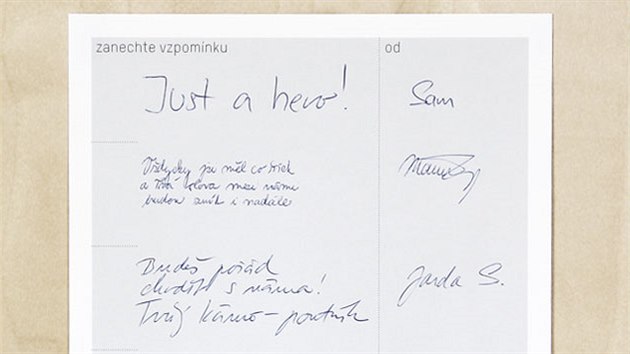 zanechte vzpomínku od
Just a hero! Sam
Vždycky jsi měl co říct
a tvá slova mezi námi
budou znít i nadále
Budeš pořád
chodit s náma!
Tvůj kámo-poutník
Jarda S.